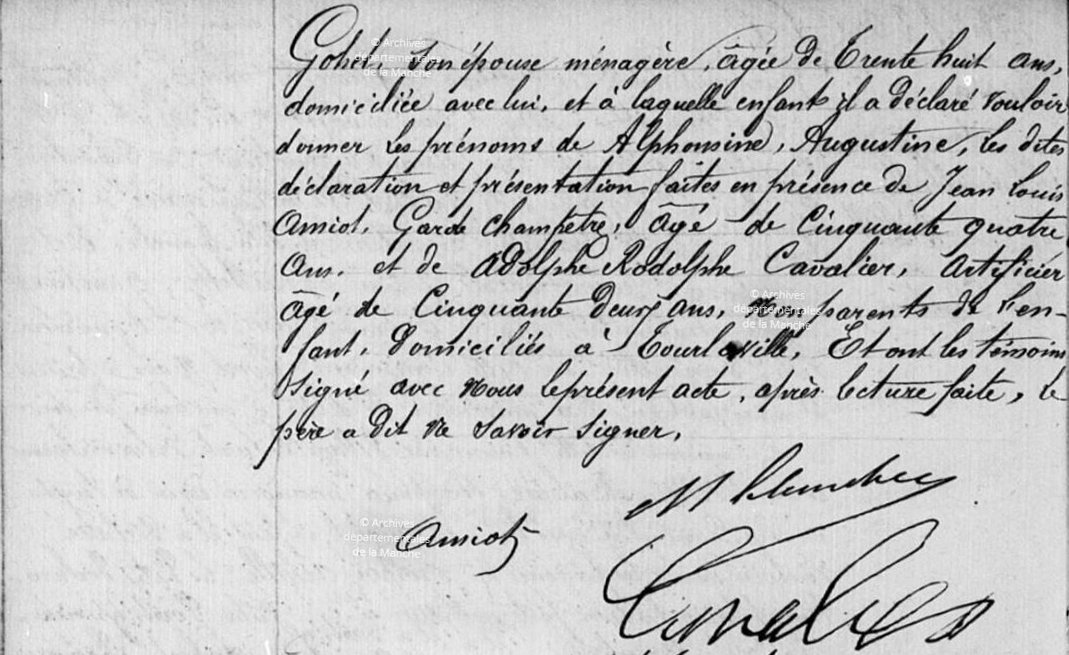 Gohel, son épouse ménagère, âgée de Trente huit ans,
domiciliée avec lui, et à laquelle enfant il a déclaré vouloir
donner les prénoms de Alphonsine, Augustine, les dites
déclaration et présentation faites en présence de Jean Louis
Amiot, Garde champêtre, âgé de Cinquante quatre
Ans, et de Adolphe Rodolphe Cavalier, Artificier
âgé de Cinquante Deux ans, parents de l'en-
fant, Domiciliés à Tourlaville, Et ont les témoins
Signé avec Nous le présent acte, après lecture faite, le
père a dit ne Savoir Signer.
Amiot
Cavalier
© Archives
départementales
de la Manche
© Archives
départementales
de la Manche
© Archives
départementales
de la Manche